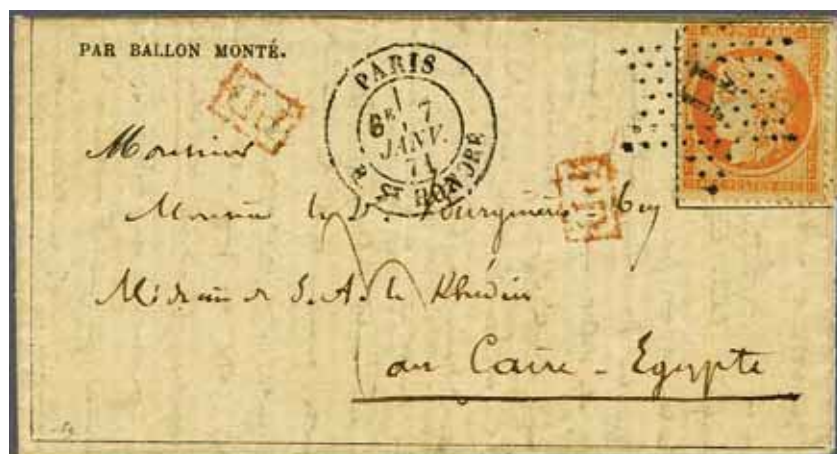 PAR BALLON MONTÉ.
PARIS
6E 7
JANV.
71
R. St HONORÉ
PD
PD
Monsieur
Monsieur le Dr. Bey
Médecin de S. A. le Khédive
au Caire - Egypte